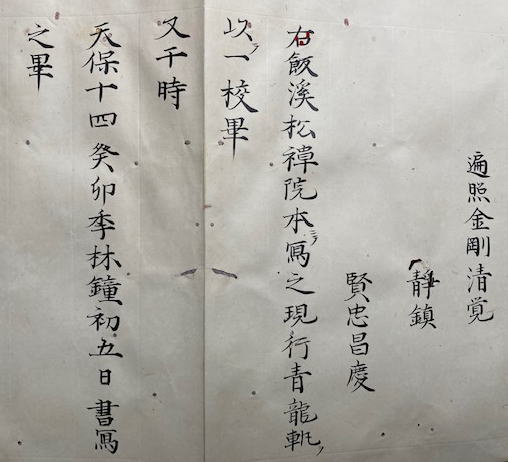 遍照金剛清覚
静鎮
賢忠昌慶
右飯溪松禅院本ニテ寫之現行青龍軌
以一校畢
又于時
天保十四癸卯季林鐘初五日書寫
之畢